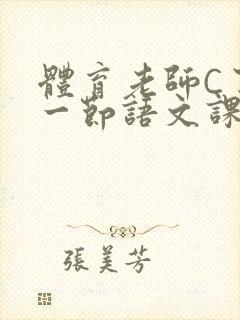 體育老師C
一節語文課
張美芳